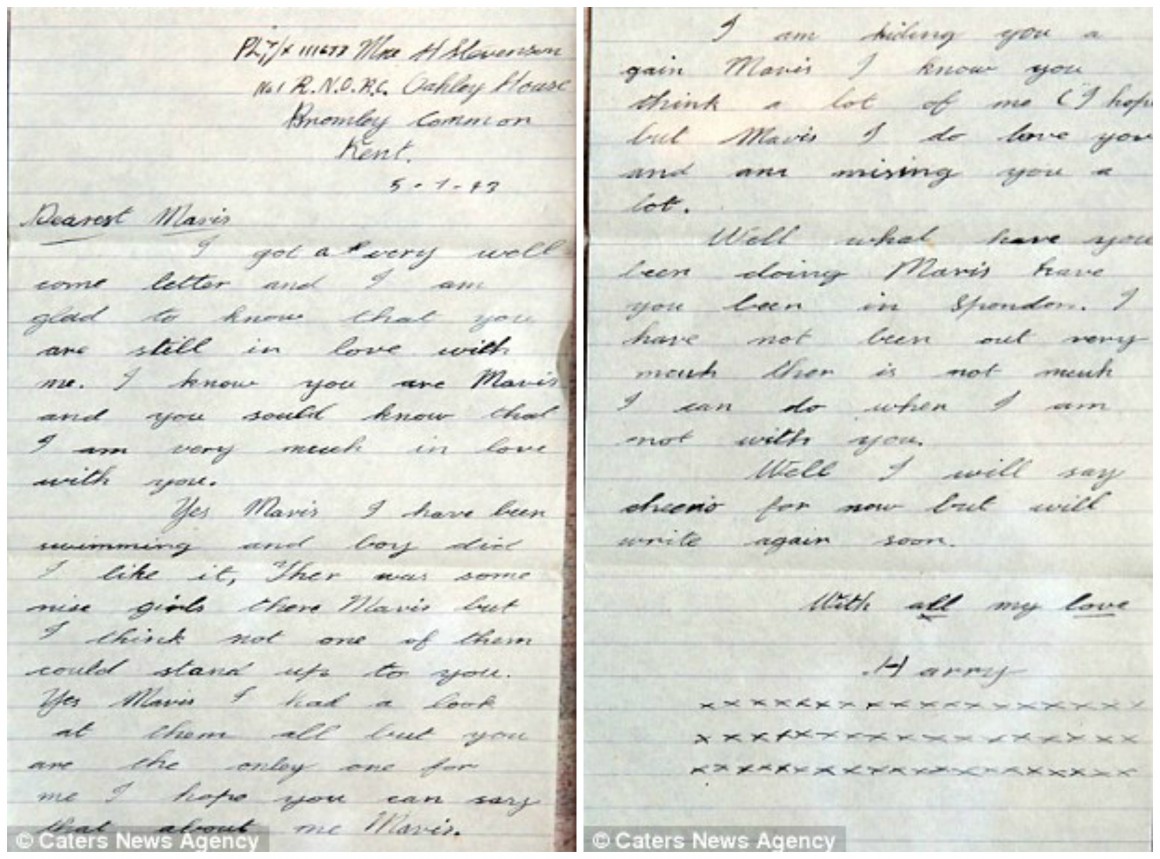 PLY/X 111677 Mne H Stevenson
No 1 R.N.O.R.C. Oakley House
Bromley Common
Kent.
5-7-43
Dearest Mavis
I got a very well
come letter and I am
glad to know that you
are still in love with
me. I know you are Mavis
and you sould know that
I am very much in love
with you.
Yes Mavis I have been
swimming and boy did
I like it, Ther was some
nise girls there Mavis but
I think not one of them
could stand up to you.
Yes Mavis I had a look
at them all but you
are the onley one for
me I hope you can say
that about me Mavis.
© Caters News Agency
I am kiding you a
gain Mavis I know you
think a lot of me (I hope
but Mavis I do love you
and am mising you a
lot.
Well what have you
been doing Mavis have
you been in Spondon. I
have not been out very
mouth ther is not meuh
I can do when I am
not with you.
Well I will say
cheerio for now but will
write again soon.
With all my love
Harry
xxxxxxxxxxxxxxxxxxxx
xxxxxxxxxxxxxxxxxxxx
xxxxxxxxxxxxxxxxxxxx
© Caters News Agency